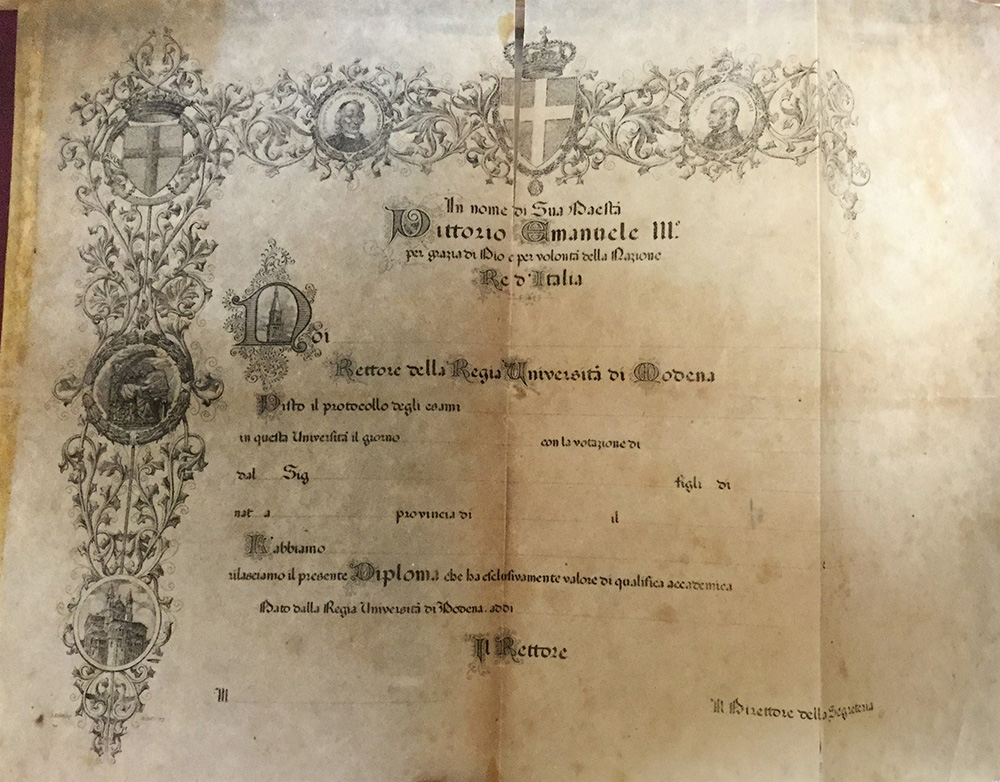 In nome di Sua Maestà
Vittorio Emanuele III.º
per grazia di Dio e per volontà della Nazione
Re d'Italia
Noi
Rettore della Regia Università di Modena
Visto il protocollo degli esami
in questa Università il giorno con la votazione di
dal Sig figli di
nat a provincia di il
L'abbiamo
rilasciamo il presente Diploma che ha esclusivamente valore di qualifica accademica
Dato dalla Regia Università di Modena, addì
Il Rettore
Il Direttore della Segreteria